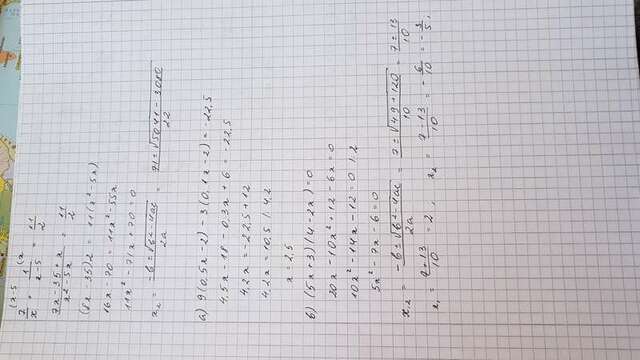 (x-5 (x
7/x + 1/(x-5) = 11/2
(7x-35+x)/(x²-5x) = 11/2
(8x-35)2 = 11(x²-5x)
16x-70 = 11x²-55x
11x²-71x+70=0
x₂ = (-b±√(b²-4ac))/2a = (71±√(5041-3080))/22
а) 9(0,5x-2)-3(0,1x-2)=-22,5
4,5x-18-0,3x+6=-22,5
4,2x=-22,5+12
4,2x=10,5 |:4,2
x=2,5
б) (5x+3)(4-2x)=0
20x-10x²+12-6x=0
10x²-14x-12=0 |:2
5x²-7x-6=0
x₁,₂ = (-b±√(b²-4ac))/2a = (7±√(49+120))/10 = (7±13)/10
x₁ = (7+13)/10 = 2, x₂ = (7-13)/10 = -6/10 = -3/5,